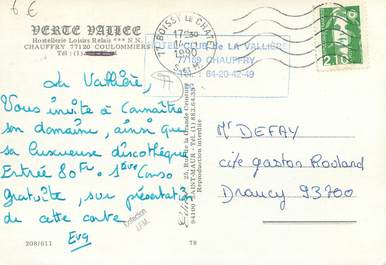 6 €
VERTE VALLEE
Hostellerie Loisirs Relais *** N.N.
CHAUFFRY 77120 COULOMMIERS
Tél. (1)
77 BOISSY LE CHATEL
17H30
1990
CLUB de LA VALLIERE
77169 CHAUFFRY
Tél. 64-20-42-49
2,10
La Vallière,
Vous invite à Connaître
son domaine, ainsi que
sa luxueuse discothèque
Entrée 80Fr. 1ère Conso
Gratuite, sur présentation
de cette carte.
Eva
Collection
25, Rue de la Grande Ceinture
94100 SAINT-MAUR - Tél. (1) 883.64.33
Reproduction interdite
Mr DEFAY
cité gaston Roulaud
Drancy 93700
208/611
78